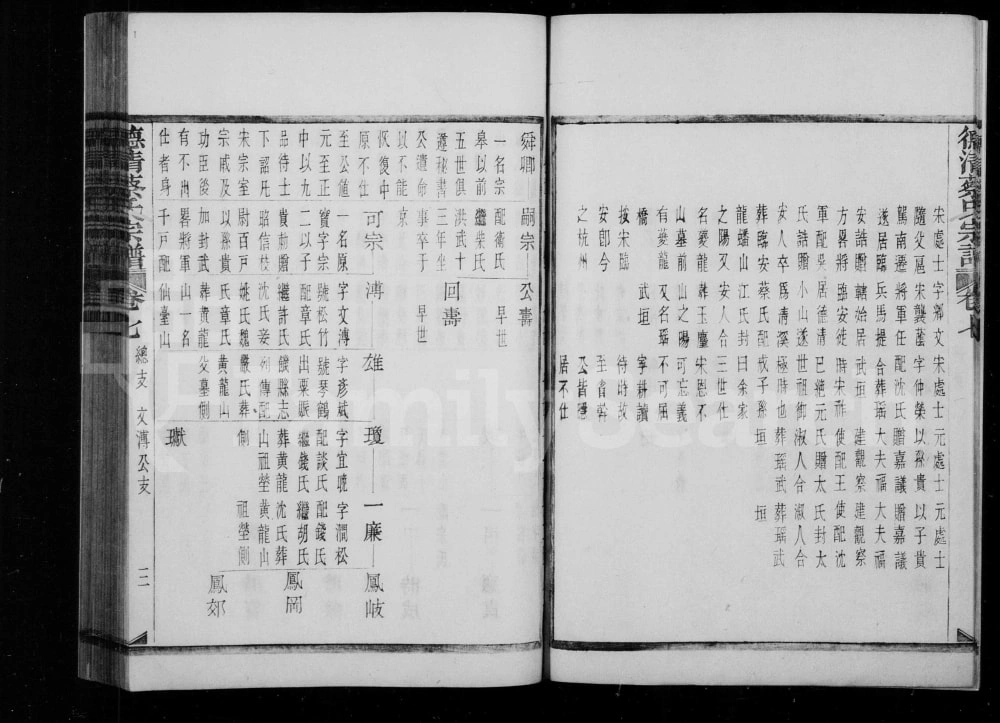 德清蔡氏宗譜 卷七
宋處士字鄉文 宋處士 元處士 元處士
隨父扈宋襲蔭 字仲榮 以孫貴 以子貴
駕南遷將軍任 配沈氏 贈嘉議 贈嘉議
遂居臨兵馬提 合葬瑶 大夫福 大夫福
安誥贈轄始居 武垣 建觀察 建觀察
方畧將臨安徙 時宋祚 使配王 使配沈
軍配吳居德清 已絶元 氏贈太 氏封太
氏誥贈小山遂 世祖御 淑人合 淑人合
安人卒爲清溪 極時也 葬瑶武 葬瑶武
葬臨安蔡氏配 戒子孫 垣 垣
龍蟠山江氏封 曰余家
之陽又安人合 三世仕
名夔龍葬玉塵 宋恩不
山墓前山之陽 可忘義
有夔龍又名瑶 不可屈
橋 武垣 寧耕讀
按宋臨 待時故
安郎今 至省幹
之杭州 公皆隱
居不仕
舜卿 嗣宗 公壽
一名宗 配衛氏 早世
皋以前 繼柴氏
五世俱 洪武十 回壽
遷秘書 三年坐
公遺命 事卒于 早世
以不能 京
恢復中
原不仕 可宗 溥 雄 瓊 一廉 鳳岐
至公值 一名原 字文溥 字彥斌 字宜聰 字澗松
元至正 實字宗 號松竹 號琴鶴 配談氏 配錢氏
中以九 二以子 配章氏 出粟賑 繼錢氏 繼胡氏 鳳岡
品待士 貴勅贈 繼許氏 饑縣志 葬黃龍 沈氏葬
下詔凡 昭信校 沈氏妾 列傳配 山祖塋 黃龍山
宋宗室 尉百戶 氏姚氏魏 嚴氏葬 側 祖塋側
宗戚及 以孫貴 氏章氏 黃龍山 鳳郊
功臣後 加封武 葬黃龍 父墓側
有不由 畧將軍 山一名 瓛
仕者身 千戶配 仙臺山
德清蔡氏宗譜 卷七 總支 文溥公支 二